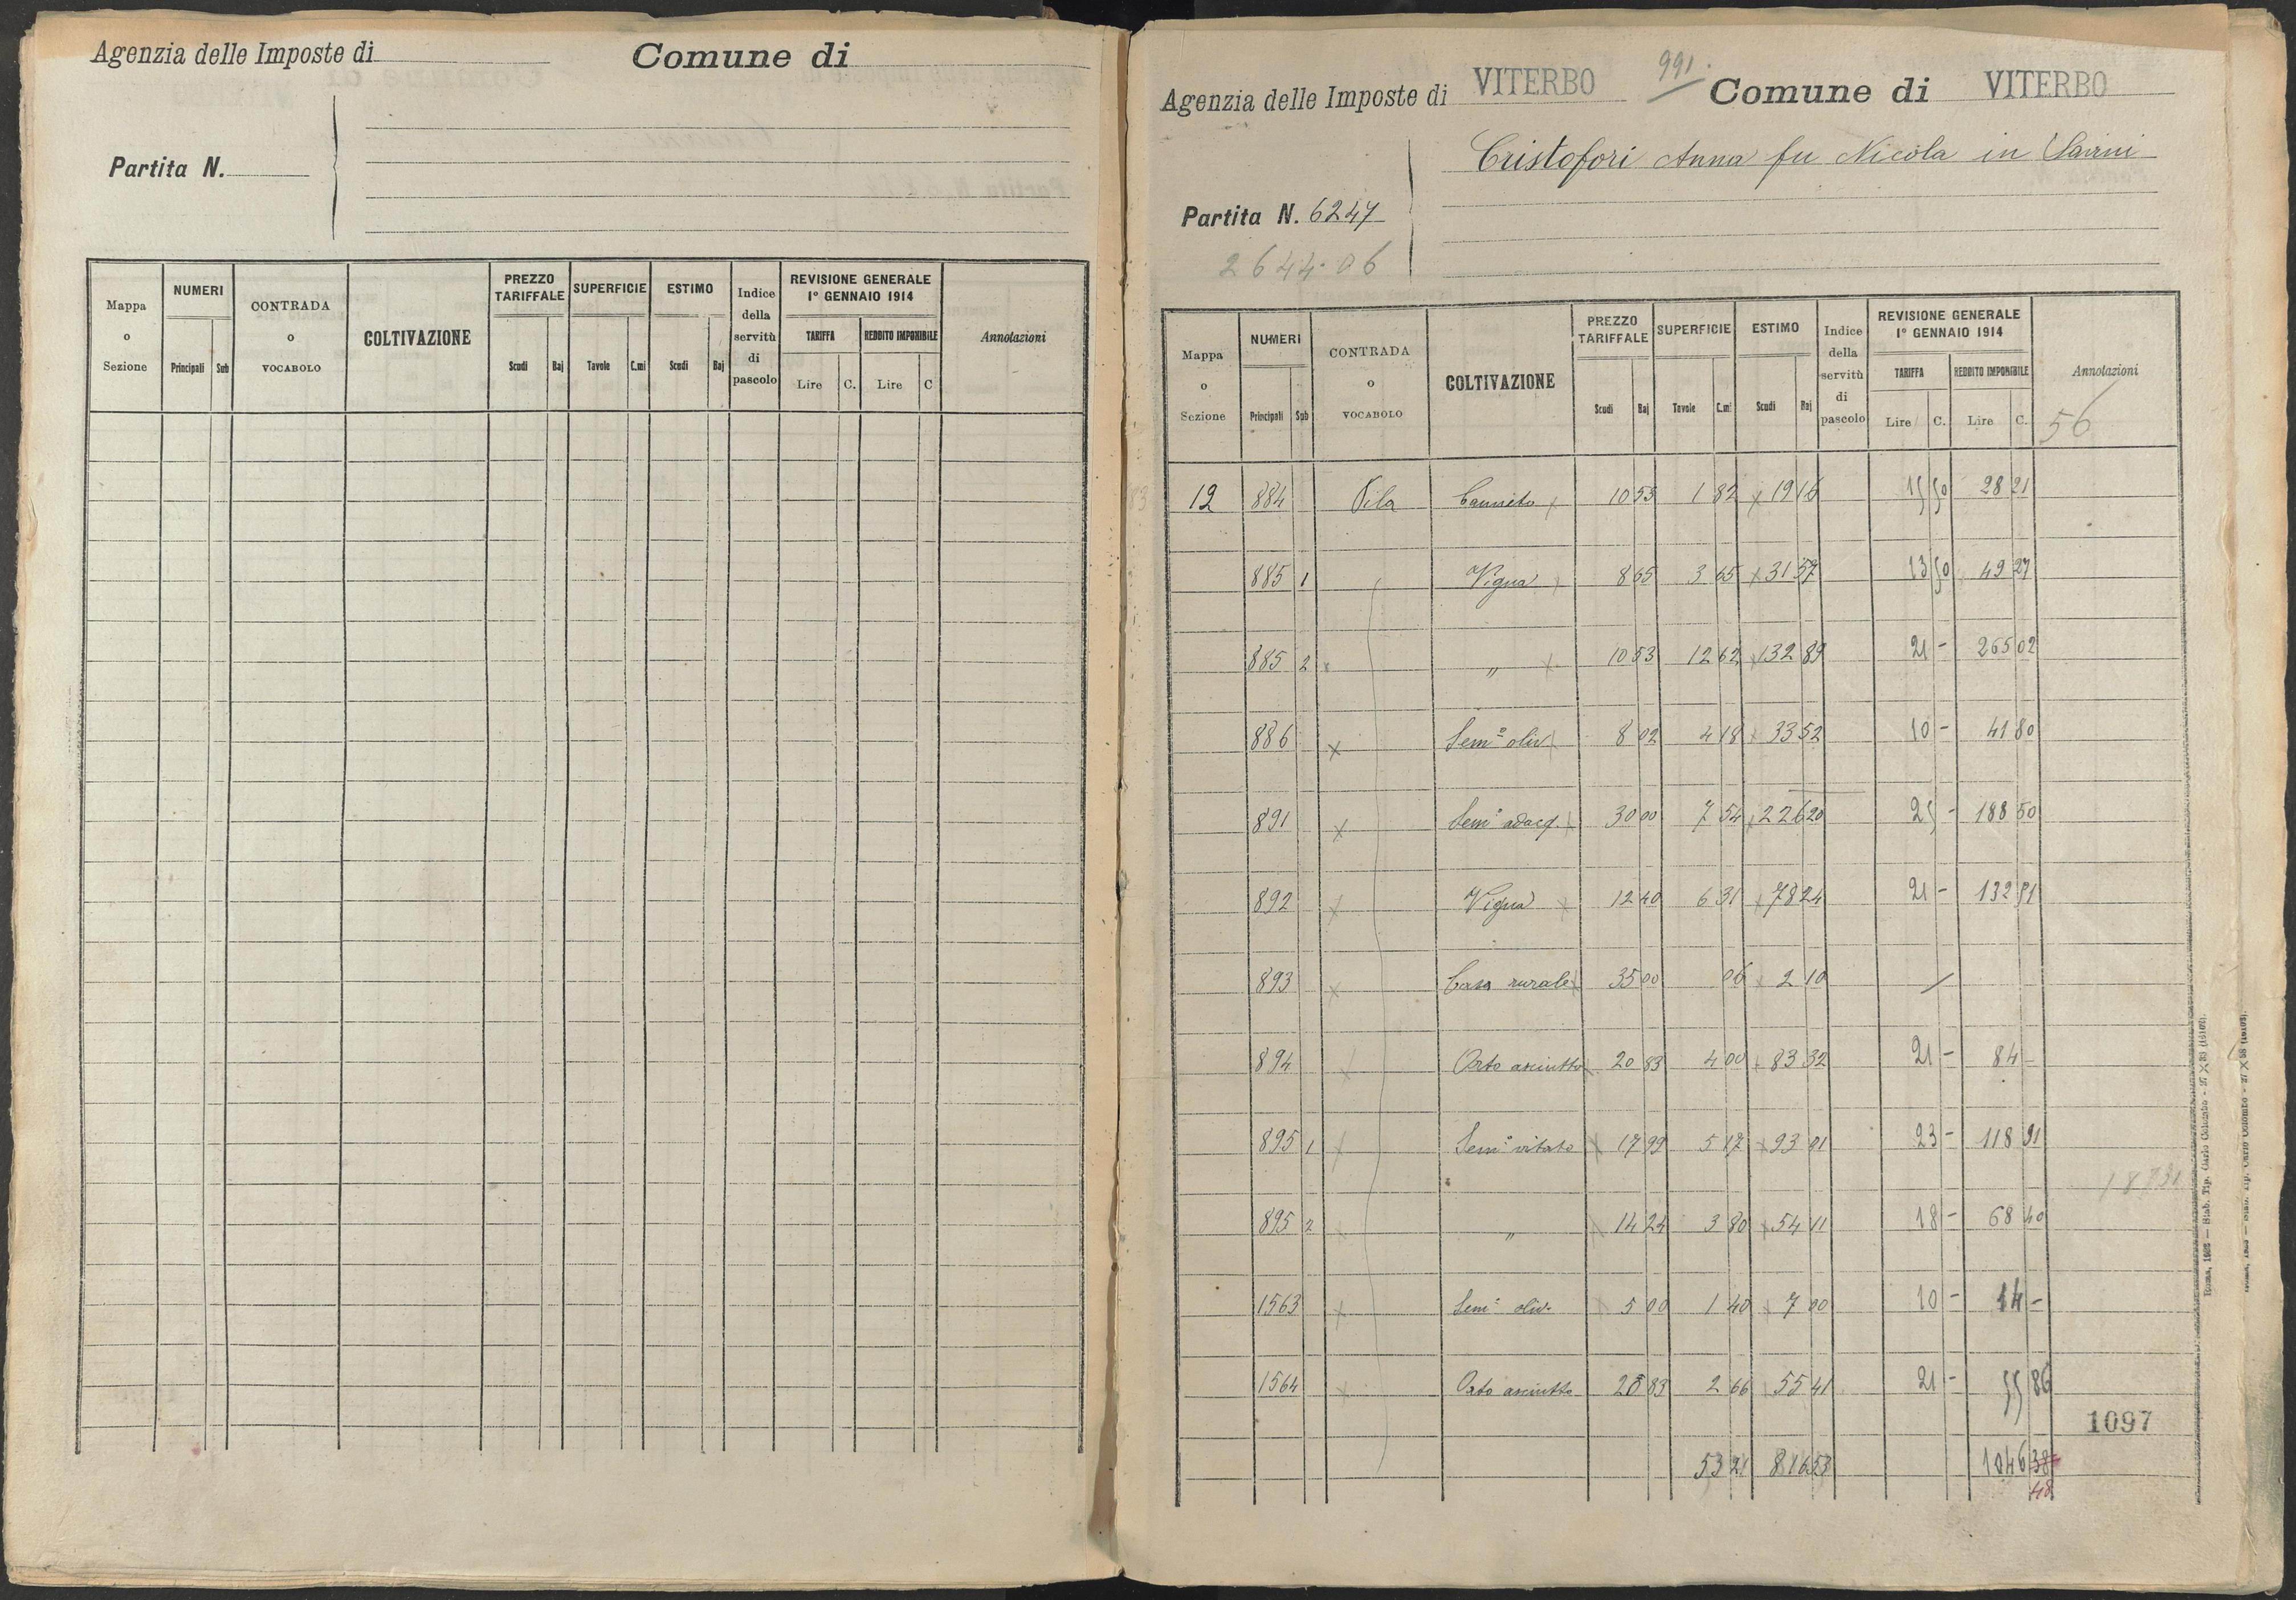 Agenzia delle Imposte di Comune di
Partita N.
Mappa o Sezione | NUMERI | CONTRADA o VOCABOLO | COLTIVAZIONE | PREZZO TARIFFALE | SUPERFICIE | ESTIMO | Indice della servitù di pascolo | REVISIONE GENERALE 1º GENNAIO 1914 | Annotazioni
Principali | Sub | Scudi | Baj | Tavole | C.mi | Scudi | Baj | TARIFFA | REDDITO IMPONIBILE
Lire | C. | Lire | C
991.
Agenzia delle Imposte di VITERBO Comune di VITERBO
Cristofori Anna fu Nicola in
Partita N. 6247
2644.06
Mappa o Sezione | NUMERI | CONTRADA o VOCABOLO | COLTIVAZIONE | PREZZO TARIFFALE | SUPERFICIE | ESTIMO | Indice della servitù di pascolo | REVISIONE GENERALE 1º GENNAIO 1914 | Annotazioni
Principali | Sub | Scudi | Baj | Tavole | C.mi | Scudi | Baj | TARIFFA | REDDITO IMPONIBILE
Lire | C. | Lire | C.
56
12 | 884 | Pila | Canneto | 10 53 | 1 82 | 19 16 | 15 50 | 28 21
885 | 1 | Vigna | 8 65 | 3 65 | 31 57 | 13 50 | 49 27
885 | 2 | " | 10 53 | 12 62 | 132 89 | 21 - | 265 02
886 | Sem.º oliv. | 8 02 | 4 18 | 33 52 | 10 - | 41 80
891 | Sem.º adacq. | 30 00 | 7 54 | 226 20 | 25 - | 188 50
892 | Vigna | 12 40 | 6 31 | 78 24 | 21 - | 132 51
893 | Casa rurale | 35 00 | 06 | 2 10
894 | Orto asciutto | 20 83 | 4 00 | 83 32 | 21 - | 84 -
895 | 1 | Sem.º vitato | 17 99 | 5 17 | 93 01 | 23 - | 118 91
1873
895 | 2 | " | 14 24 | 3 80 | 54 11 | 18 - | 68 40
1563 | Sem.º oliv. | 5 00 | 1 40 | 7 00 | 10 - | 14 -
1564 | Orto asciutto | 20 83 | 2 66 | 55 41 | 21 - | 55 86
1097
53 21 | 816 53 | 1046 38
48
Roma, 1922 — Stab. Tip. Carlo Colombo - 27 X 38 (16102).